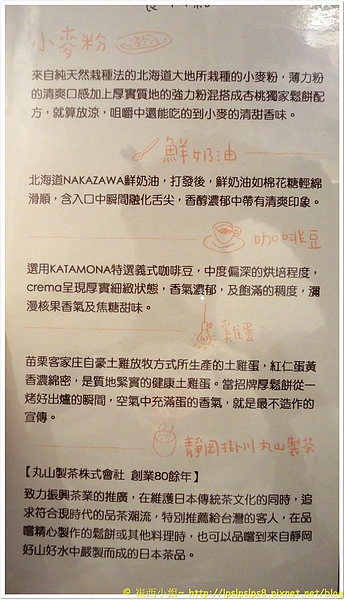 小麥粉
來自純天然栽種法的北海道大地所栽種的小麥粉，薄力粉
的清爽口感加上厚實質地的強力粉混搭成杏桃獨家鬆餅配
方，就算放涼，咀嚼中還能吃的到小麥的清甜香味。
鮮奶油
北海道NAKAZAWA鮮奶油，打發後，鮮奶油如棉花糖輕綿
滑順，含入口中瞬間融化舌尖，香醇濃郁中帶有清爽印象。
咖啡豆
選用KATAMONA特選義式咖啡豆，中度偏深的烘培程度，
crema呈現厚實細緻狀態，香氣濃郁，及飽滿的稠度，瀰
漫核果香氣及焦糖甜味。
雞蛋
苗栗客家庄自豪土雞放牧方式所生產的土雞蛋，紅仁蛋黃
香濃綿密，是質地緊實的健康土雞蛋。當招牌厚鬆餅從一
烤好出爐的瞬間，空氣中充滿蛋的香氣，就是最不造作的
宣傳。
靜岡掛川丸山製茶
【丸山製茶株式會社 創業80餘年】
致力振興茶業的推廣，在維護日本傳統茶文化的同時，追
求符合現時代的品茶潮流，特別推薦給台灣的客人，在品
嚐精心製作的鬆餅或其他料理時，也可以品嚐到來自靜岡
好山好水中嚴製而成的日本茶品。
© 崔西小姐~ http://lpslpslps8.pixnet.net/blog